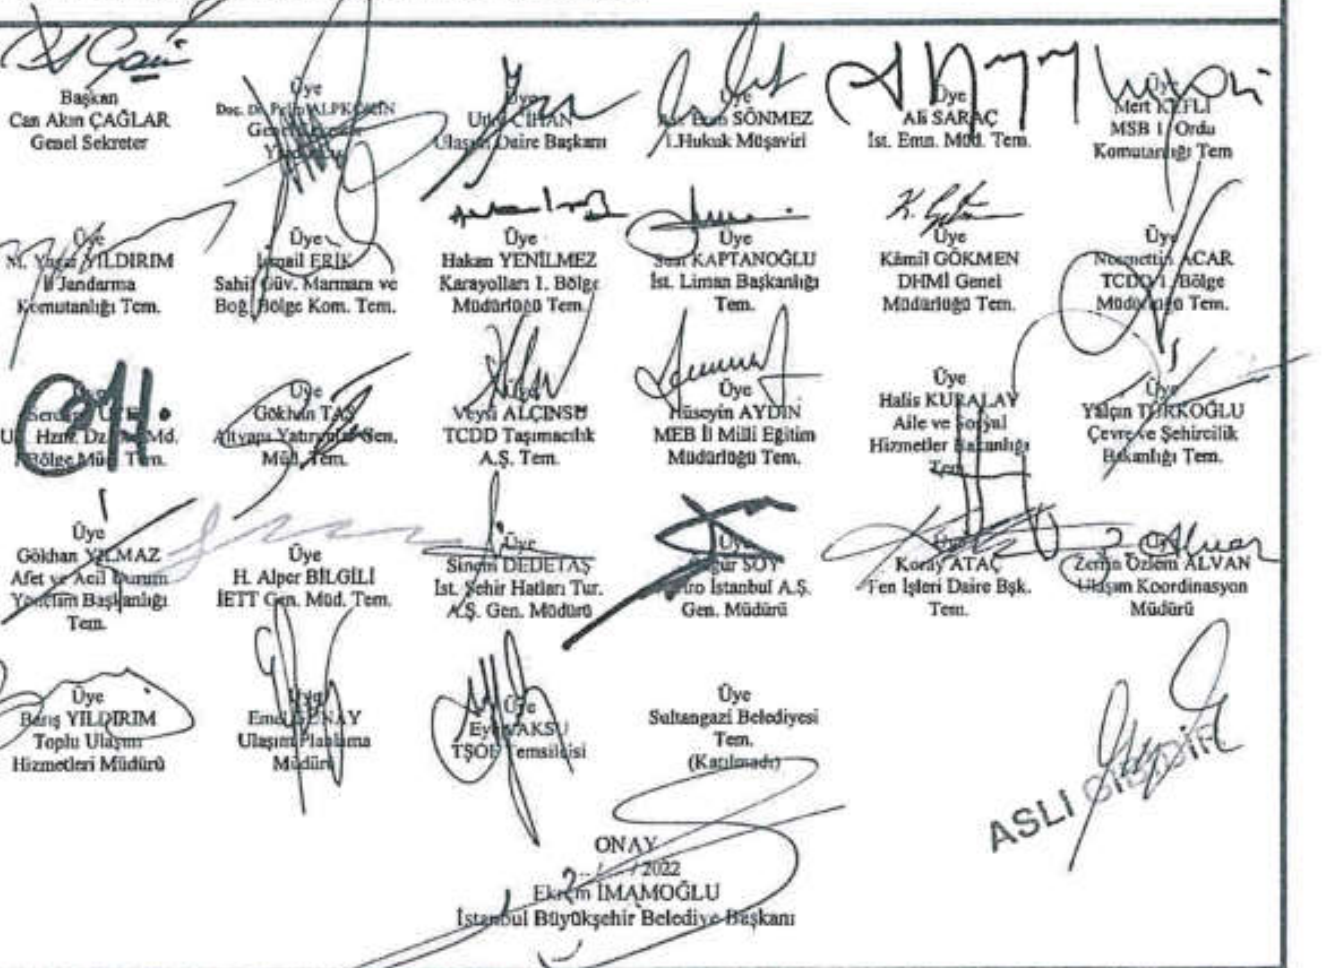 Başkan
Can Akın ÇAĞLAR
Genel Sekreter
Üye
Doç. Dr. Pelin ALPKÖKİN
Genel Sekreter
Üye
CİHAN
Ulaşım Daire Başkanı
Üye
SÖNMEZ
1.Hukuk Müşaviri
Üye
Ali SARAÇ
İst. Emn. Müd. Tem.
Üye
Mert KEFLİ
MSB 1. Ordu
Komutanlığı Tem
Üye
M. YILDIRIM
İl Jandarma
Komutanlığı Tem.
Üye
İsmail ERİK
Sahil Güv. Marmara ve
Boğ. Bölge Kom. Tem.
Üye
Hakan YENİLMEZ
Karayolları 1. Bölge
Müdürlüğü Tem.
Üye
KAPTANOĞLU
İst. Liman Başkanlığı
Tem.
Üye
Kâmil GÖKMEN
DHMİ Genel
Müdürlüğü Tem.
Üye
Necmettin ACAR
TCDD 1. Bölge
Müdürlüğü Tem.
Hzm. Md.
Bölge Müd. Tem.
Üye
Gökhan TAŞ
Altyapı Yatırımlar Gen.
Müd. Tem.
Üye
Veysi ALÇINSU
TCDD Taşımacılık
A.Ş. Tem.
Üye
Hüseyin AYDIN
MEB İl Milli Eğitim
Müdürlüğü Tem.
Üye
Halis KURALAY
Aile ve Sosyal
Hizmetler Bakanlığı
Tem.
Üye
Yalçın TÜRKOĞLU
Çevre ve Şehircilik
Bakanlığı Tem.
Üye
Gökhan YILMAZ
Afet ve Acil Durum
Yönetim Başkanlığı
Tem.
Üye
H. Alper BİLGİLİ
İETT Gen. Müd. Tem.
Üye
Sinem DEDETAŞ
İst. Şehir Hatları Tur.
A.Ş. Gen. Müdürü
Üye
SOY
İstanbul A.Ş.
Gen. Müdürü
Üye
Koray ATAÇ
Fen İşleri Daire Bşk.
Tem.
Zerrin Özlem ALVAN
Ulaşım Koordinasyon
Müdürü
Üye
Barış YILDIRIM
Toplu Ulaşım
Hizmetleri Müdürü
Üye
GÜNAY
Ulaşım Planlama
Müdürü
Üye
AKSU
TŞOF Temsilcisi
Üye
Sultangazi Belediyesi
Tem.
(Katılmadı)
ASLI GİBİDİR
ONAY
2022
Ekrem İMAMOĞLU
İstanbul Büyükşehir Belediye Başkanı